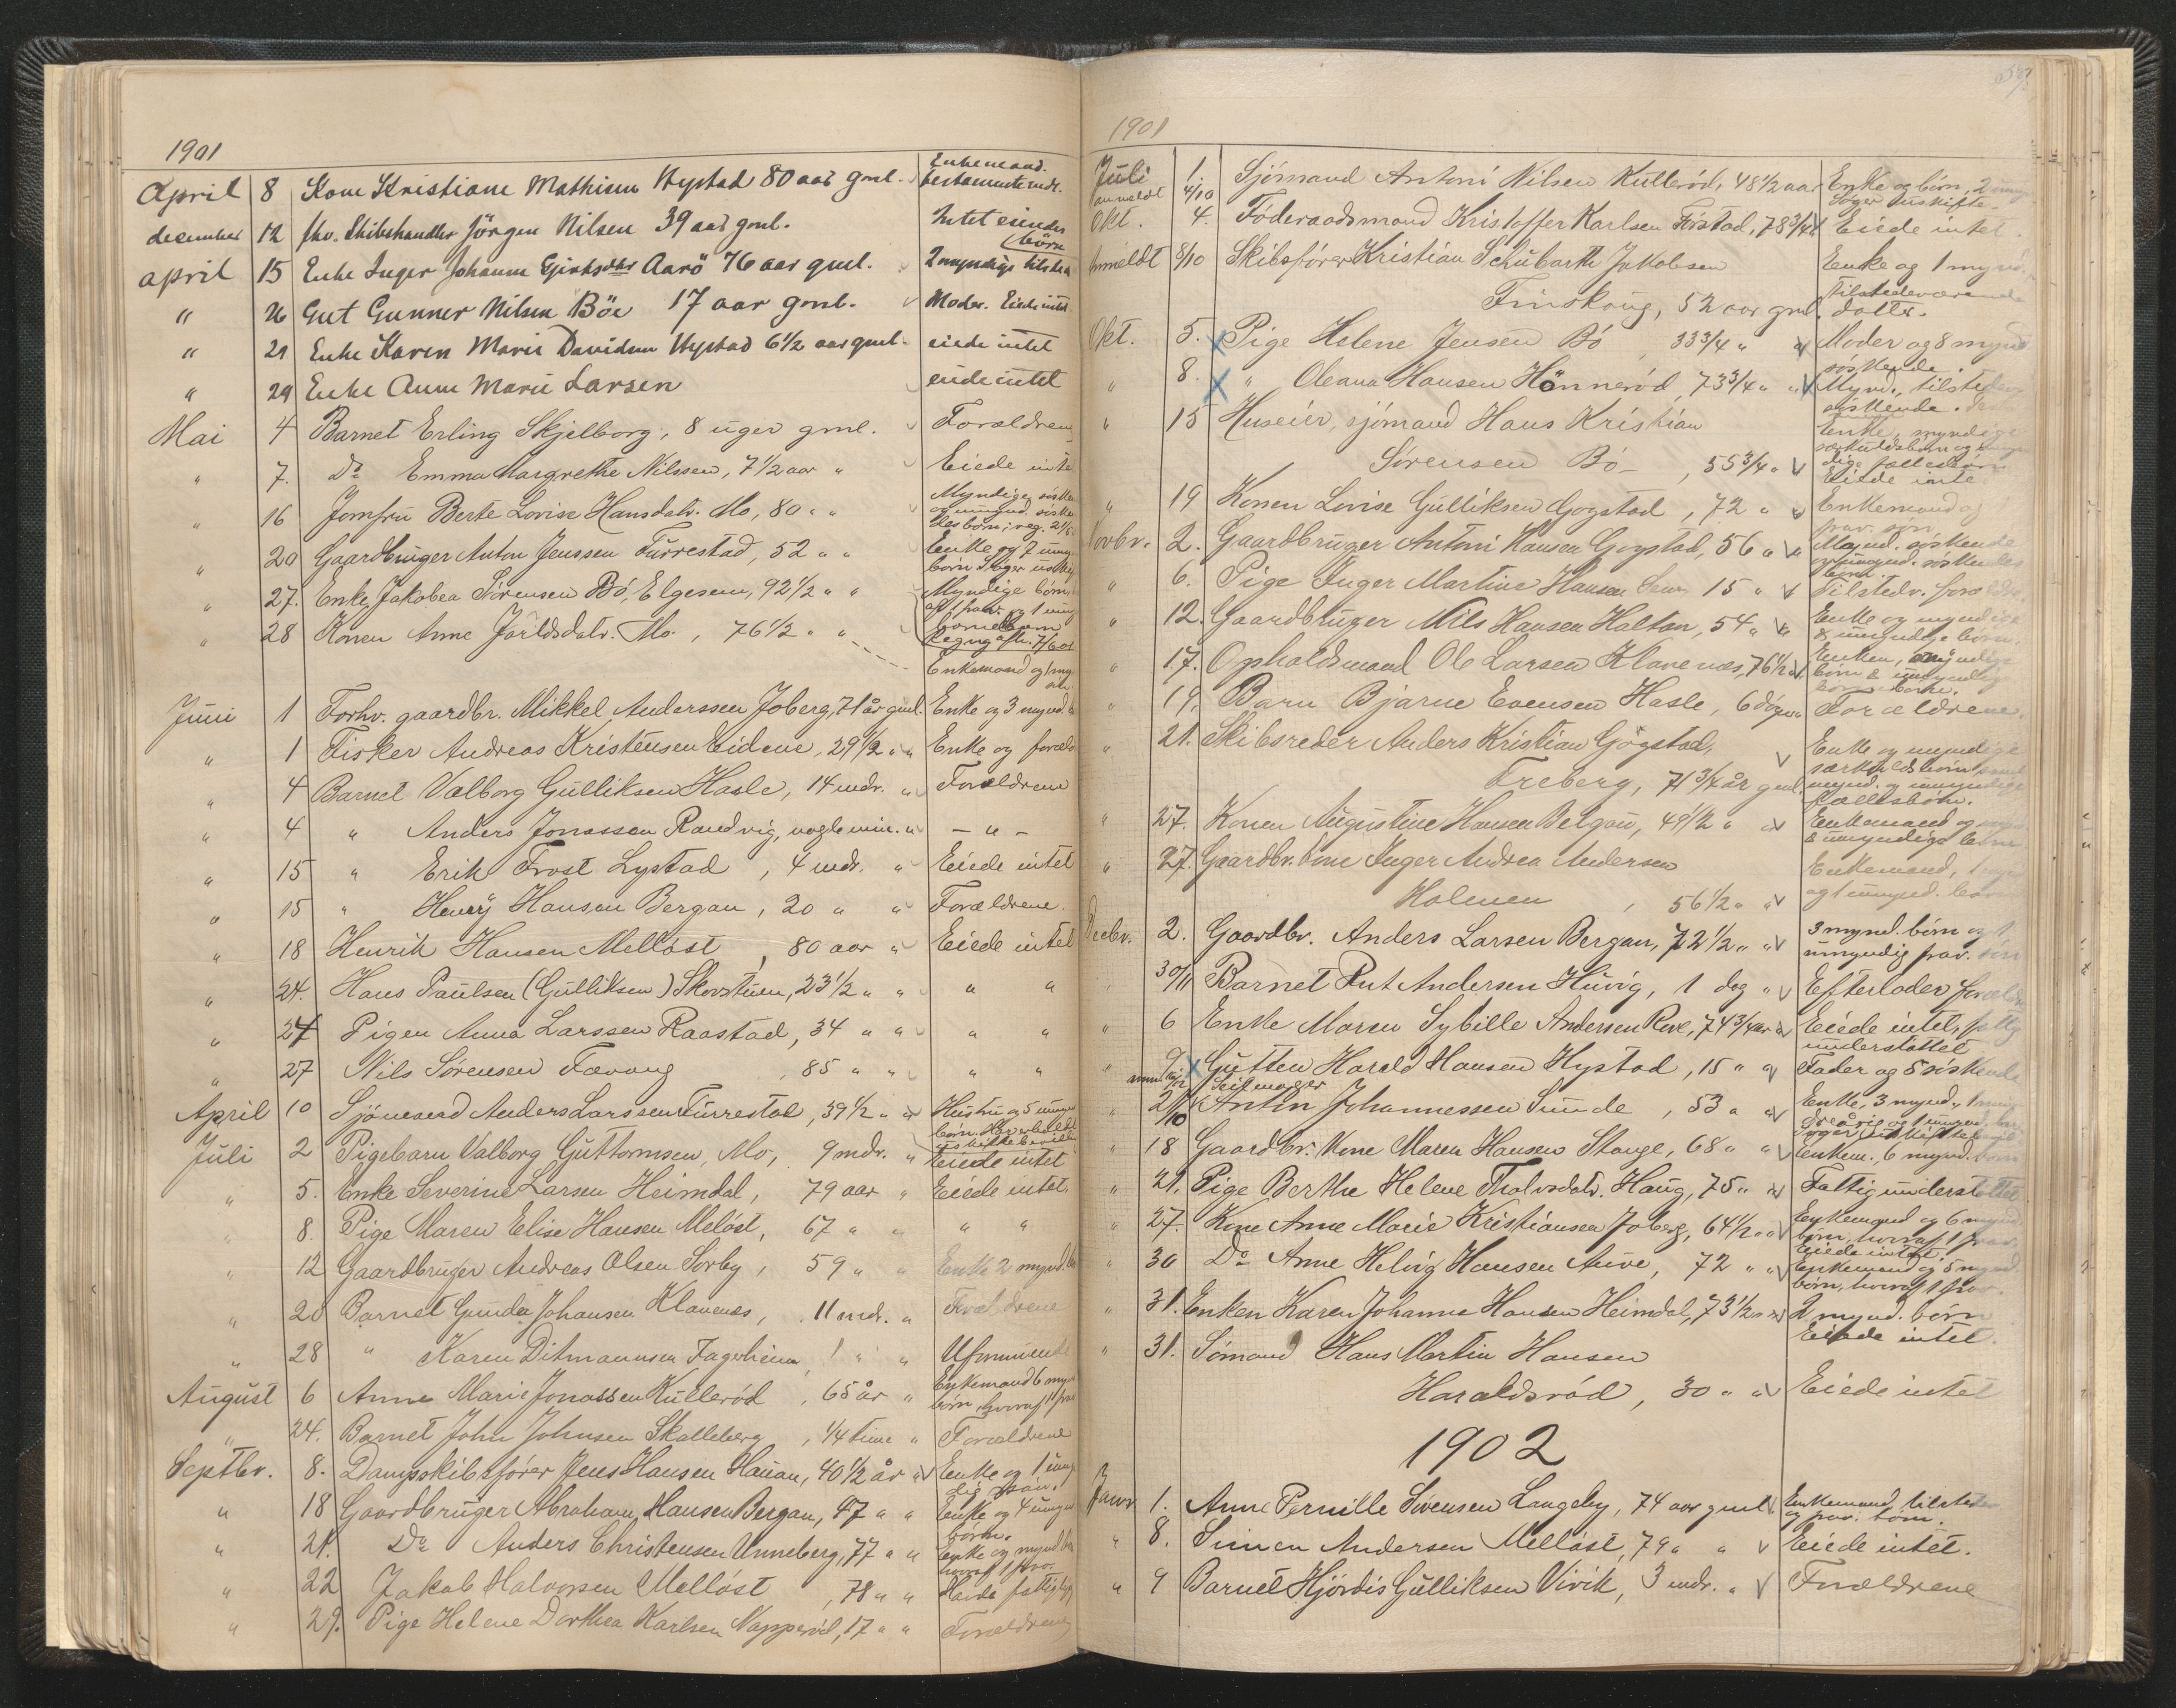 1901
April 8 Kone Kristiane Mathisen Hystad 80 aar gml. Enkemand.
desember 12 fhv. Skibshandler Jörgen Nilsen 39 aar gml. Intet eiendes
april 15 Enke Inger Johanne Aarö 76 aar gml. 2 myndige børn
" 26 Gut Gunner Nilsen Böe 17 aar gml. Moder. Eiede intet
" 29 Enke Karen Marie Davidsen Hystad 6½ aar gml. eiede intet
" 29 Enke Anne Marie Larsen eiede intet
Mai 4 Barnet Erling Skjelborg, 8 uger gml. Forældrene
" 7. Do Emma Margrethe Nilssen, 7½ aar " Eiede inte
" 16 Jomfru Berte Lovise Hansdatr. Mo, 80 " " Myndige søsken
" 20 Gaardbruger Anton Jenssen Furrestad, 52 " " Enke og 7 umyn
børn
" 27. Enke Jakobea Sørensen Bö, Elgesem, 92½ " " Myndige børn,
" 28 Konen Anne Jarldsdatr. Mo., 76½ " "
Enkemand og 1 myn
Juni 1 Forhv. gaardbr. Mikkel Anderssen Joberg, 71 år gml. Enke og 3 mynd.
" 1 Fisker Andreas Kristensen Eidene, 29½ " " Enke og foræld
" 4 Barnet Valborg Gulliksen Hasle, 14 mdr. " Forældrene
" 4 " Anders Jonassen Randvig, nogle min. " - " -
" 15 " Erik Frost Lystad, 4 mdr. " Eiede intet
" 15 " Henry Hansen Bergan, 20 " " Forældrene.
" 18 Henrik Hansen Melløst, 80 aar " Eiede intet
" 24. Hans Paulsen (Gulliksen) Skovstuen, 23½ " " " "
" 24 Pigen Anna Larssen Raastad, 34 " " " "
" 27 Nils Sørensen Favang, 85 " " " "
April 10 Sjömand Anders Larssen Furrestad, 39½ " " Hustru og 5 umyn
børn.
Juli 2 Pigebarn Valborg Guttormsen, Mo, 9 mdr. " Eiede intet
" 5. Enke Severine Larsen Heimdal, 79 aar " Eiede intet.
" 8. Pige Maren Elise Hansen Meløst, 67 " " " "
" 12 Gaardbruger Andreas Olsen Sørby, 59 " " Enke 2 mynd.
" 20 Barnet Gunda Johansen Klavenæs, 11 mdr. " Forældrene
" 28 " Karen Ditmannsen Fagerheim 1 " "
August 6 Anne Marie Jonassen Kullerød, 65 år " Enkemand 6 myn
børn, hvoraf 1 fra
" 24. Barnet John Johnsen Skalleberg, ¼ time " Forældrene
Septbr. 8. Dampskibsfører Jens Hansen Hauan, 40½ år " Enke og 1 umyn
" 18 Gaardbruger Abraham Hansen Bergan, 47 " " Enke og 4 umyn
børn.
" 21. Do Anders Christensen Unneberg, 77 " " Enke og mynd.
hvoraf 1 frav.
" 22 Jakob Halvorsen Melløst, 78 " " Havde fattig
" 29. Pige Helene Dorthea Karlsen Napperød, 17 " " Forældrene
1901
Juli 1. Sjömand Antoni Nilsen Kullerød, 48½ aar Enke og børn, 2 umyn
anmeldt 4/10
Okt. 4. Föderaadsmand Kristoffer Karlsen Förstad, 78¾ Eiede intet.
Anmeldt 8/10 Skibsfører Kristian Schubarth Jakobsen Enke og 1 mynd.
tilstedeværende
Finskoug, 52 aar gml. datter.
Okt. 5. Pige Helene Jensen Bö, 33¾ " " Moder og 8 mynd
søskende.
" 8. " Oleana Hansen Hönnerød, 73¾ " " Mynd. tilsted
søskende.
" 15 Huseier, sjömand Hans Kristian Enke, myndige
Sørensen Bö, 55¾ " Eiede inte
" 19 Konen Lovise Gulliksen Gogstad, 72 " Enkemand og
frav. søn
Novbr. 2. Gaardbruger Antoni Hansen Gogstad, 56 " Mynd. søskende
" 6. Pige Inger Martine Hansen 15 " Tilstedv. foræld
" 12. Gaardbruger Nils Hansen Haltan, 54 " Enke og myndige
& umyndige børn.
" 17. Opholdsmand Ole Larsen Klavenæs, 76½ Enken, myndige
børn & umyndige
" 19. Barn Bjarne Evensen Hasle, 6 døgn Forældrene.
" 21. Skibsreder Anders Kristian Gogstad, Enke og myndige
særkuldsbørn samt
Freberg, 71¾ år gml. mynd. og umyndige
fællesbørn.
" 27. Konen Augustine Hansen Bergan, 49½ " " Enkemand og
& umyndige børn
" 27. Gaardbr.kone Inger Andrea Andersen Enkemand,
Holmen, 56½ " " og 1 umynd. barn
Decbr. 2. Gaardbr. Anders Larsen Bergan, 72½ " " 3 mynd. børn og 1
umyndig frav. søn
30/11 Barnet Rut Andersen Huvig, 1 dag " Efterlader foræld
" 6 Enke Maren Sybille Andersen Rove, 74¾ aar Eiede intet, fattig
understøttet
" 9 Gutten Harald Hansen Hystad, 15 " " Fader og 5 søskende
Seilmager
" 21/10 Anton Johannessen Sunde, 53 " " Enke, 3 mynd.
" 18 Gaardbr. Kone Maren Hansen Stange, 68 " " enkem., 6 mynd. børn
" 21. Pige Berthe Helene Tholvsdatr. Haug, 75 " " Fattigunderstøttet
" 27. Kone Anne Marie Kristiansen Joberg, 64½ " " Enkemand og 6 mynd.
børn, hvoraf 1 frav.
Eiede intet.
" 30 Do Anne Helvig Hansen Auve, 72 " " Enkemand og 5 mynd.
børn, hvoraf 1 frav.
" 31. Enken Karen Johanne Hansen Heimdal, 73½ " " 2 mynd. børn
Eiede intet.
" 31. Sømand Hans Martin Hansen
Haraldsrød, 30 " " Eiede intet
1902
Janvr 1. Anne Pernille Sörensen Langeby, 74 aar gml. Enkemand, tilsted
og frav. børn.
" 8. Simen Andersen Melløst, 79 " " Eiede intet.
" 9 Barnet Hjördis Gulliksen Virik, 3 mdr. " Forældrene